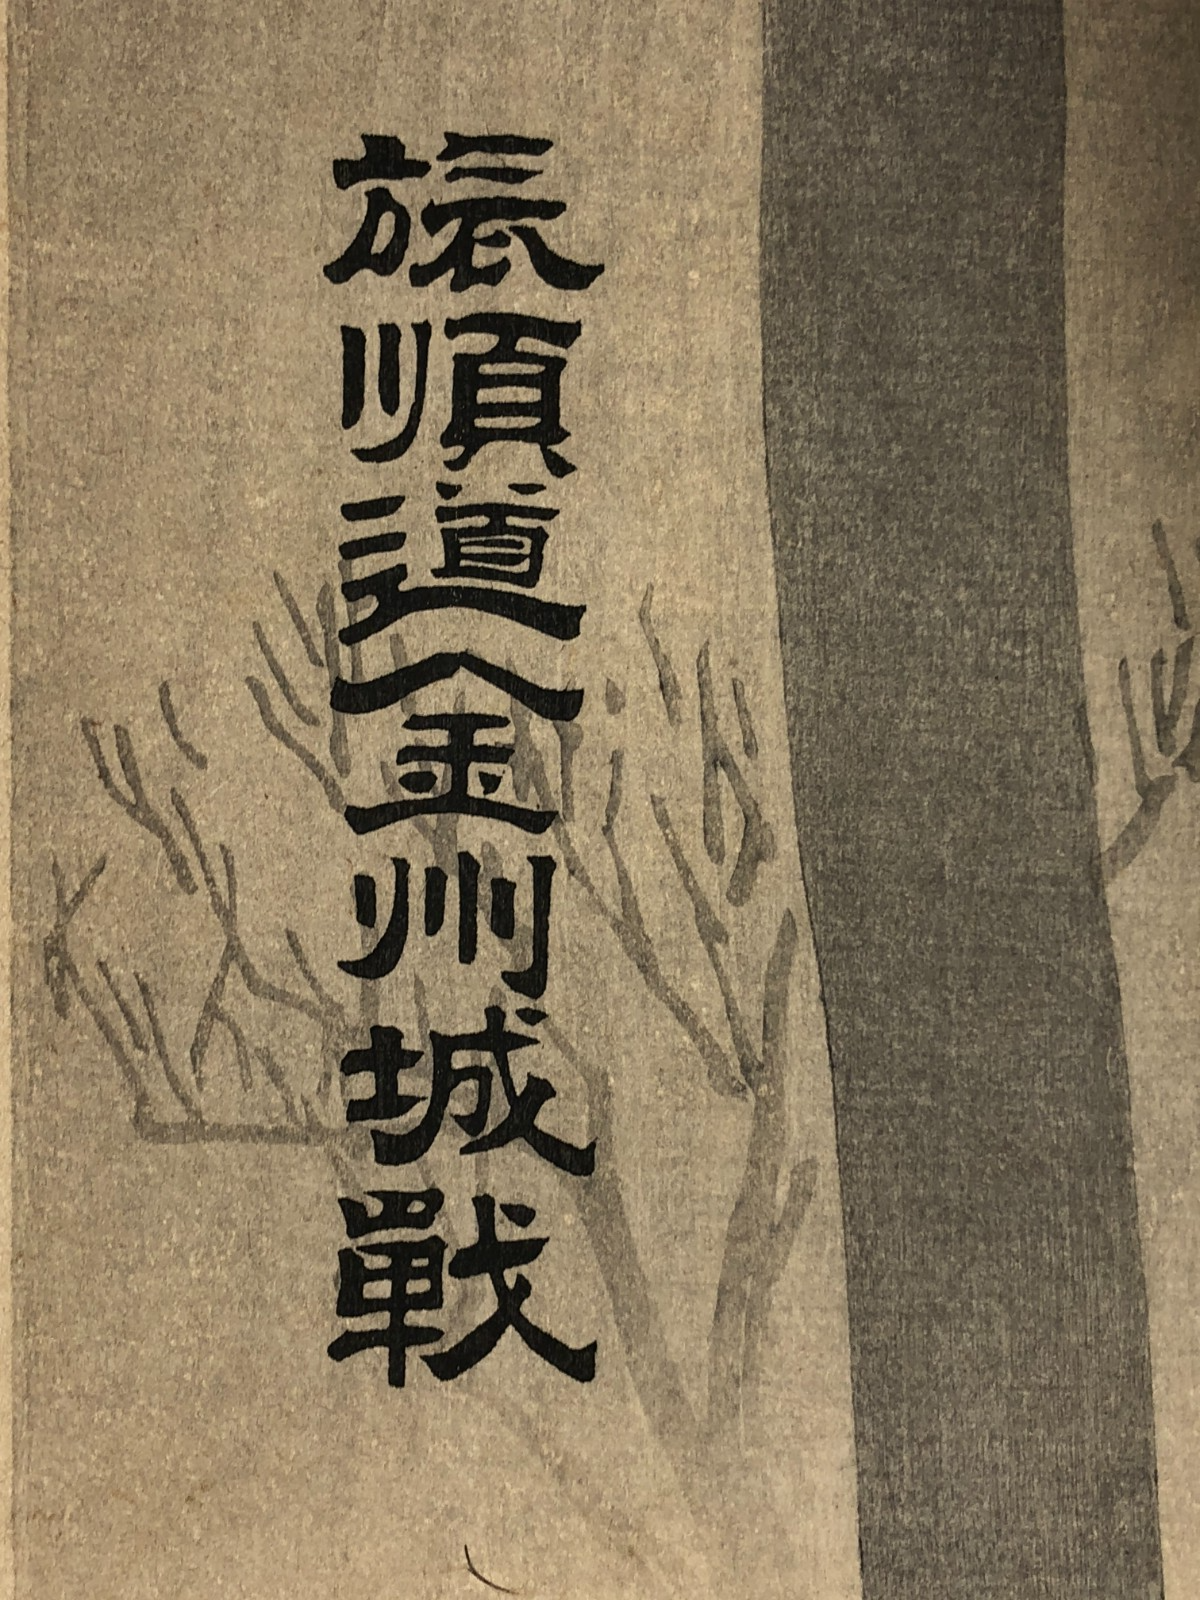 旅順道金州城戰